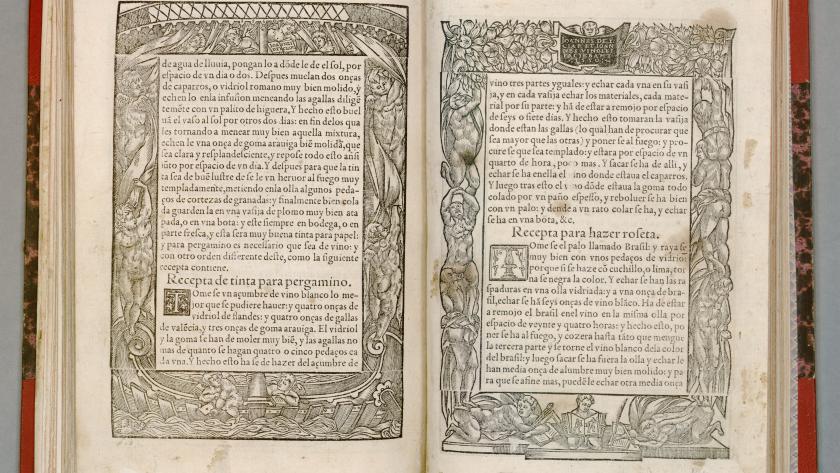 de agua de lluuia, pongan lo a dōde le de el sol, por
espacio de vn dia o dos. Despues muelan dos onças
de caparros, o vidriol romano muy bien molido, y
echen lo enla infusion meneando las agallas diligē
temēte con vn palito de higuera, Y hecho esto buel
uā el vaso al sol por otros dos dias: en fin delos qua
les tornando a menear muy bien aquella mixtura,
echen le vna onça de goma arauiga biē molida, que
sea clara y resplandesciente, y repose todo esto ansi
iūto por espacio de vn dia. Y despues para que la tin
ta sea de buē lustre de se le vn heruor al fuego muy
templadamente, metiendo enla olla algunos peda-
ços de cortezas de granadas: y finalmente bien cola
da guarden la en vna vasija de plomo muy bien ata
pada, o en vna bota: y este siempre en bodega, o en
parte fresca, y esta sera muy buena tinta para papel:
y para pergamino es necessario que sea de vino: y
con otro orden differente deste, como la siguiente
recepta contiene.
Recepta de tinta para pergamino.
TOme se vn açumbre de vino blanco lo me-
jor que se pudiere hauer: y quatro onças de
vidriol de flandes: y quatro onças de gallas
de valēcia, y tres onças de goma arauiga. El vidriol
y la goma se han de moler muy biē, y las agallas no
mas de quanto se hagan quatro o cinco pedaços ca
da vna. Y hecho esto ha se de hazer del açumbre de
IOANNES DE Y
CIAR ET IOAN
NES VINGLES
vino tres partes yguales: y echar cada vna en su vasi
ja, y en cada vasija echar los materiales, cada mate-
rial por su parte: y hā de estar a remojo por espacio
de seys o siete dias. Y hecho esto tomaran la vasija
donde estan las gallas (lo qual han de procurar que
sea mayor que las otras) y poner se al fuego: y pro-
cure se que sea templado: y estara por espacio de vn
quarto de hora, poco mas. Y sacar se ha de alli, y
echar se ha enella el vino donde estaua el caparros.
Y luego tras esto el vino dōde estaua la goma todo
colado por vn paño espesso, y reboluer se ha bien
con vn palo: y dende a vn rato colar se ha, y echar
se ha en vna bota, &c.
Recepta para hazer roseta.
TOme se el palo llamado Brasil: y raya se
muy bien con vnos pedaços de vidrio:
porque si se haze cō cuchillo, o lima, tor
na se negra la color. Y echar se han las ra
spaduras en vna olla vidriada: y a vna onça de bra-
sil, echar se hā seys onças de vino blāco. Ha de estar
a remojo el brasil enel vino en la misma olla por
espacio de veynte y quatro horas: y hecho esto, po
ner se ha al fuego, y cozera hasta tāto que mengue
la tercera parte y se torne el vino blanco dela color
del brasil: y luego sacar se ha fuera la olla y echar le
han media onça de alumbre muy bien molido: y pa
ra que se afine mas, puedē le echar otra media onça